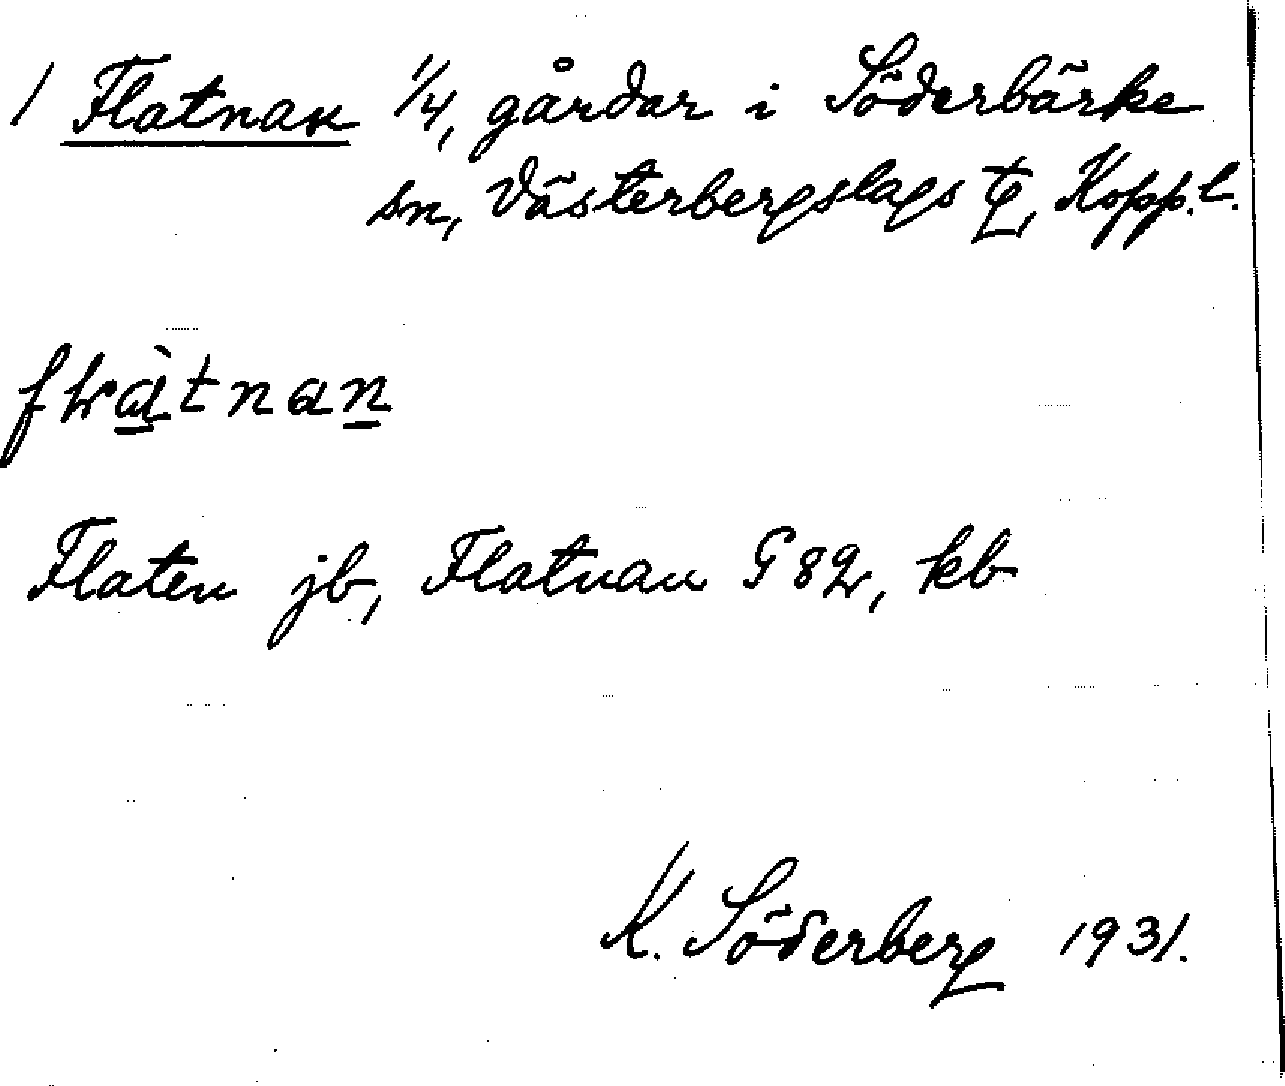 1 Flatnan 1/4, gårdar i Söderbärke
sn, Västerbergslags tg, Kopp.l.
fꞭàtnan
Flaten jb, Flatnan G 82, kb
K. Söderberg 1931.